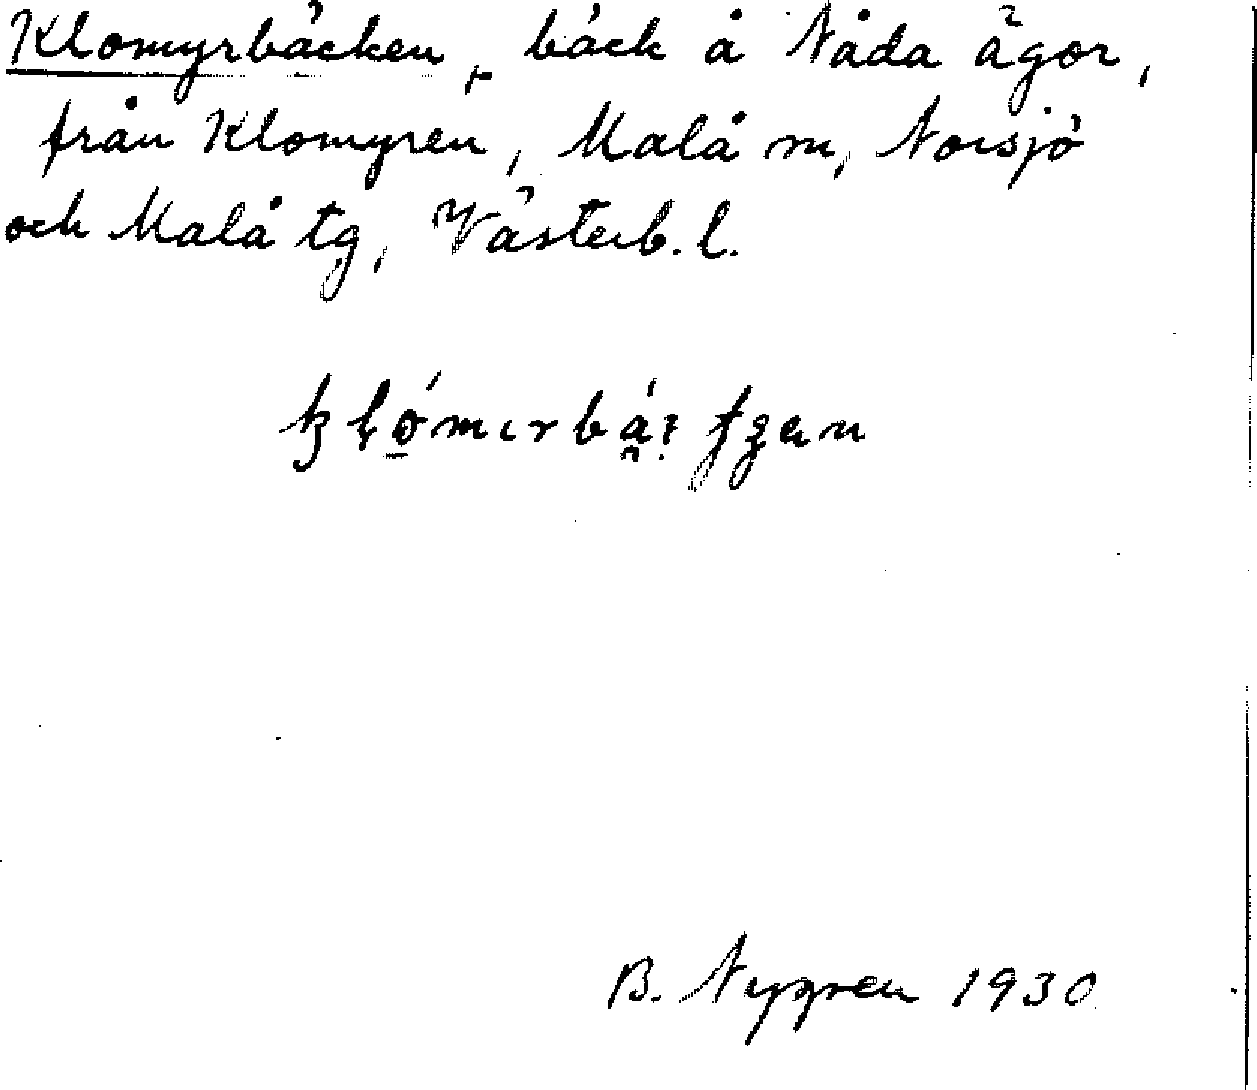 Klomyrbäcken, bäck å Nåda ägor,
från Klomyren, Malå sn, Norsjö
och Malå tg, Västerb. l.
B. Nygren 1930